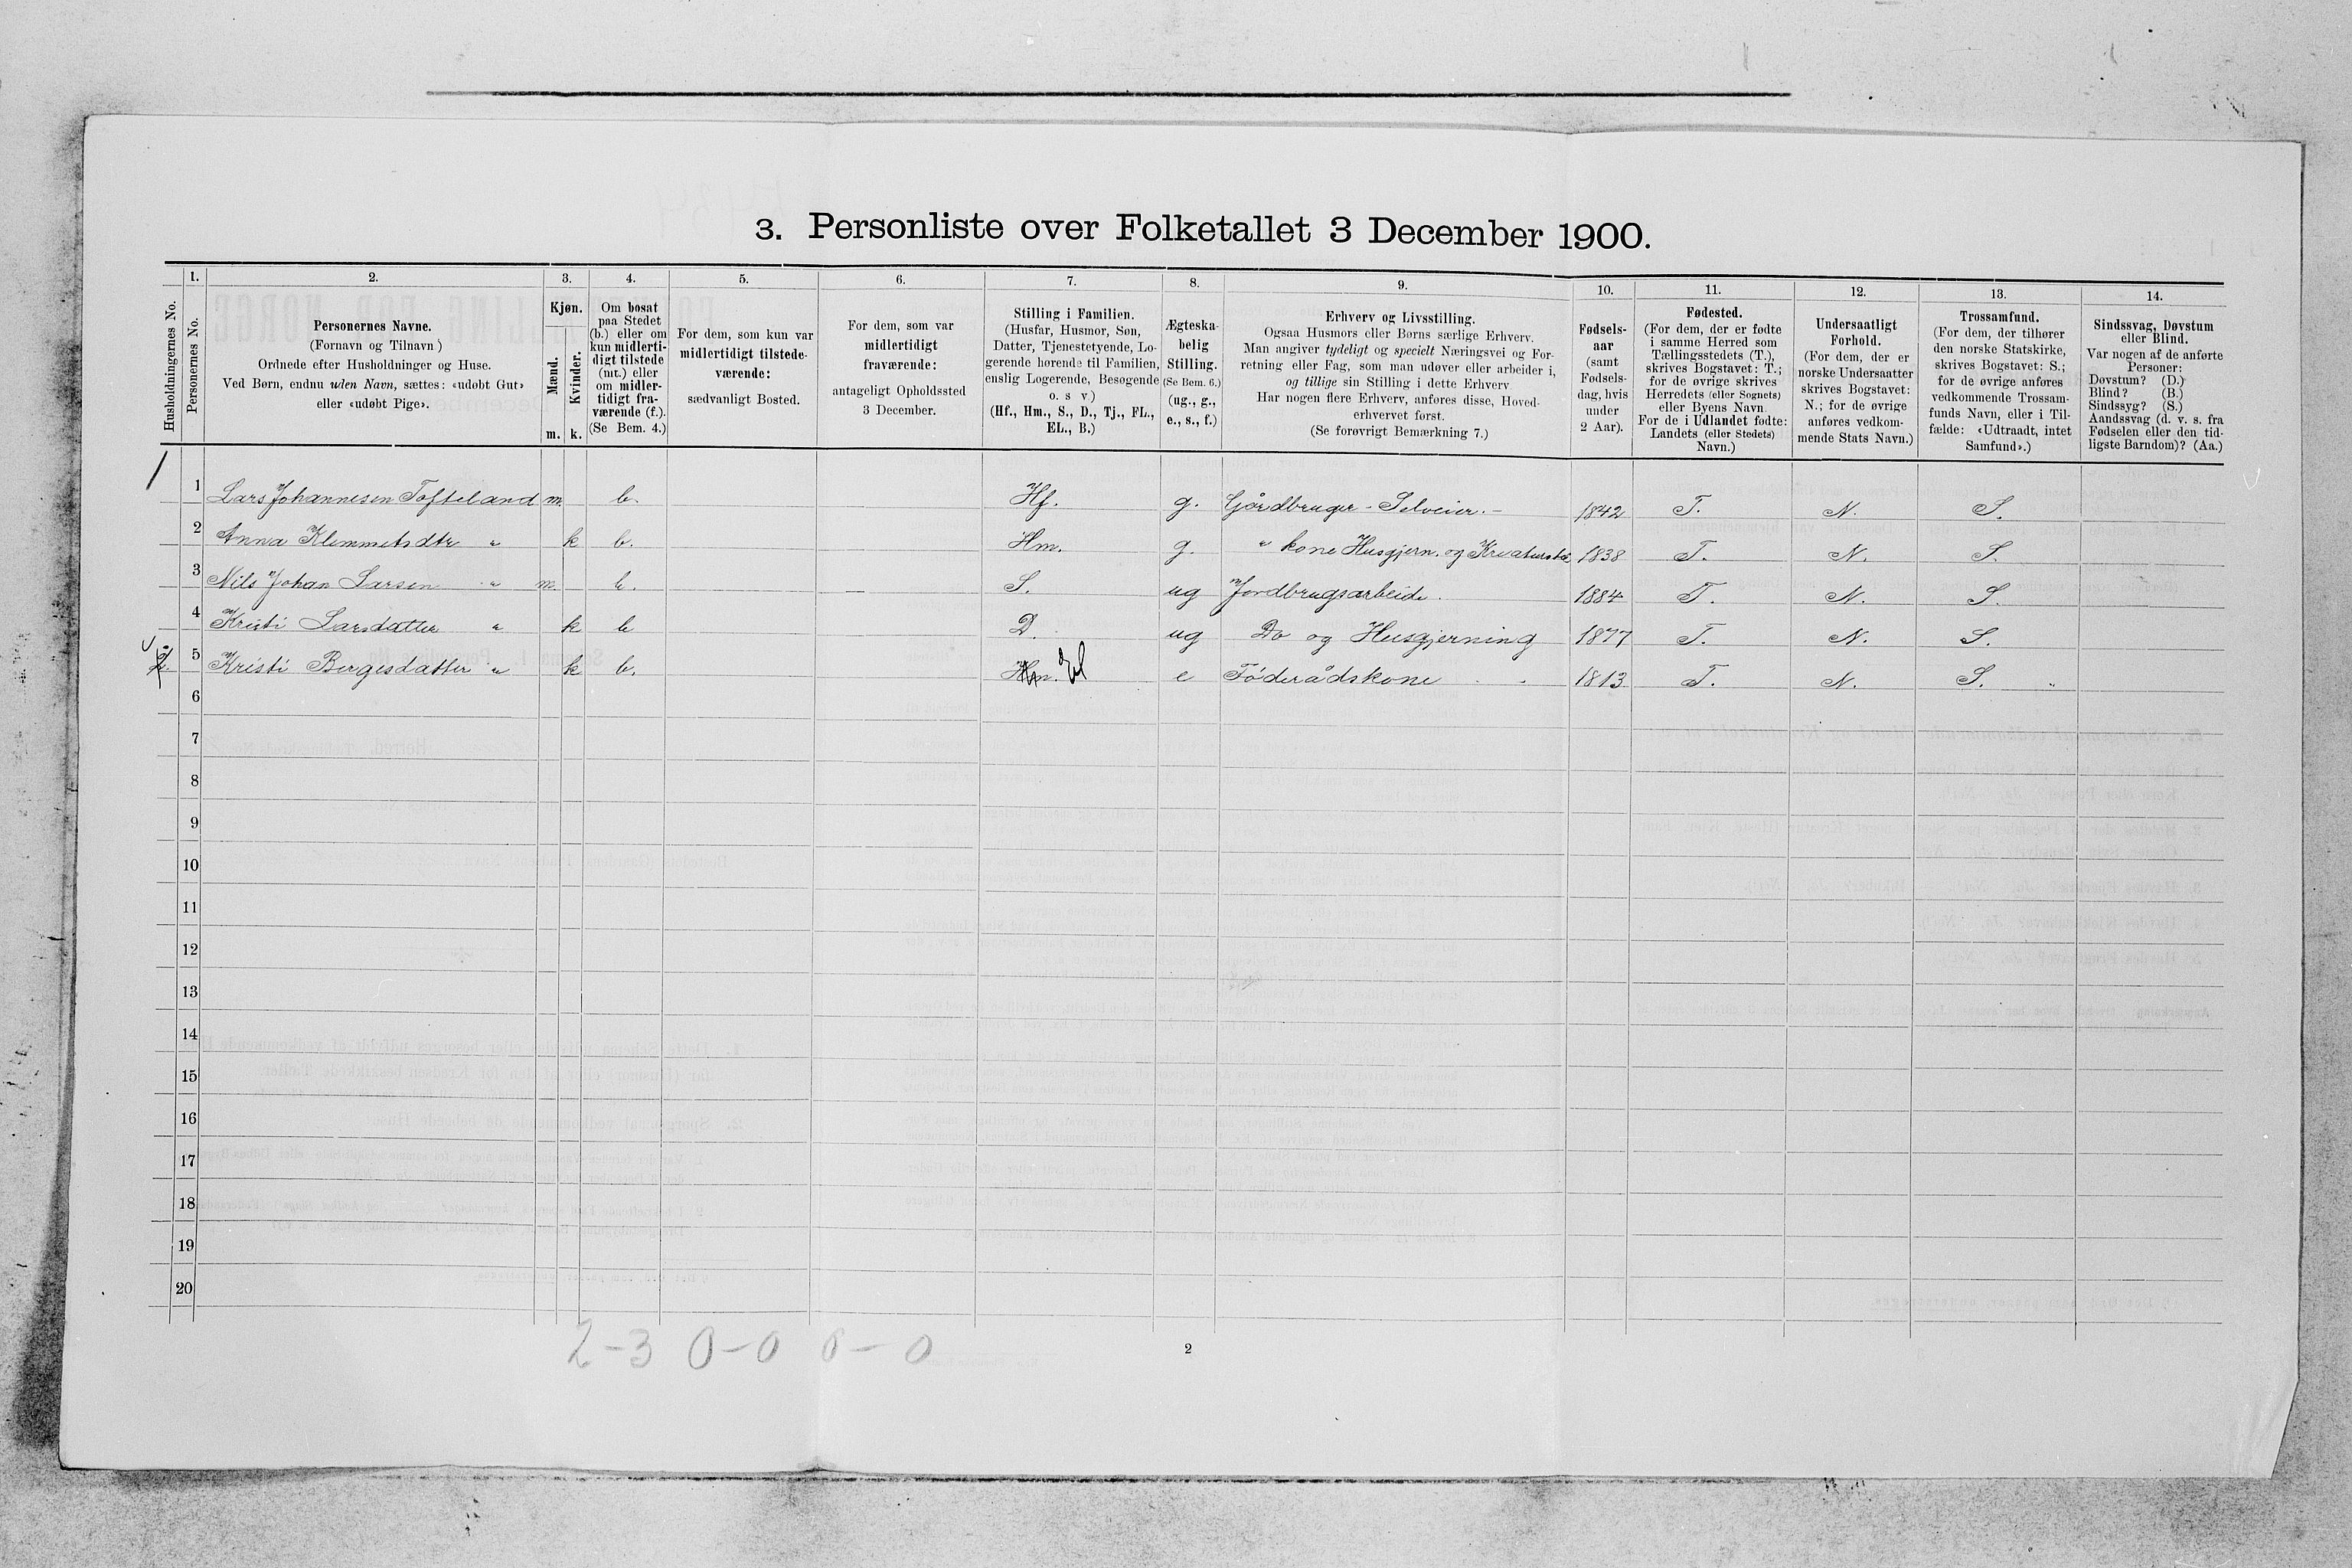 3. Personliste over Folketallet 3 December 1900.
Husholdningernes No.
1.
Personernes No.
2.
Personernes Navne.
(Fornavn og Tilnavn)
Ordnede efter Husholdninger og Huse.
Ved Børn, endnu uden Navn, sættes: «udøbt Gut»
eller «udøbt Pige».
3.
Kjøn.
Mænd.
Kvinder.
m. k.
4.
Om bosat
paa Stedet
(b.) eller om
kun midlerti-
digt tilstede
(mt.) eller
om midler-
tidigt fra-
værende (f.).
(Se Bem. 4.)
5.
For dem, som kun var
midlertidigt tilstede-
værende:
sædvanligt Bosted.
6.
For dem, som var
midlertidigt
fraværende:
antageligt Opholdssted
3 December.
7.
Stilling i Familien.
(Husfar, Husmor, Søn,
Datter, Tjenestetyende, Lo-
gerende hørende til Familien,
enslig Logerende, Besøgende
o. s v)
(Hf., Hm., S., D., Tj., FL.,
EL., B.)
8.
Ægteska-
belig
Stilling.
(Se Bem. 6.)
(ug., g.,
e., s., f.)
9.
Erhverv og Livsstilling.
Ogsaa Husmors eller Børns særlige Erhverv.
Man angiver tydeligt og specielt Næringsvei og For-
retning eller Fag, som man udøver eller arbeider i,
og tillige sin Stilling i dette Erhverv
Har nogen flere Erhverv, anføres disse, Hoved-
erhvervet først.
(Se forøvrigt Bemærkning 7.)
10.
Fødsels-
aar
(samt
Fødsels-
dag, hvis
under
2 Aar).
11.
Fødested.
(For dem, der er fødte
i samme Herred som
Tællingsstedets (T.),
skrives Bogstavet: T.;
for de øvrige skrives
Herredets (eller Sognets)
eller Byens Navn.
For de i Udlandet fødte:
Landets (eller Stedets)
Navn.)
12.
Undersaatligt
Forhold.
(For dem, der er
norske Undersaatter
skrives Bogstavet:
N.; for de øvrige
anføres vedkom-
mende Stats Navn.)
13.
Trossamfund.
(For dem, der tilhører
den norske Statskirke,
skrives Bogstavet: S.;
for de øvrige anføres
vedkommende Trossam-
funds Navn, eller i Til-
fælde: «Udtraadt, intet
Samfund».)
14.
Sindssvag, Døvstum
eller Blind.
Var nogen af de anførte
Personer:
Døvstum? (D.)
Blind? (B.)
Sindssyg? (S.)
Aandssvag (d. v. s. fra
Fødselen eller den tid-
ligste Barndom)? (Aa.)
1 Lars Johannesen Tofteland m. b. Hf. g. Gårdbruger - Selveier. - 1842 T. N. S.
2 Anna Klemmetsdtr " k b. Hm. g. " kone Husgjern. og 1838 T. N. S.
3 Nils Johan Larsen " m. b. S. ug Jordbrugsarbeide. 1884 T. N. S.
4 Kristi Larsdatter " k b D. ug Do og Husgjerning 1877 T. N. S.
5 Kristi Bergesdatter " k b. Hm. el e Føderådskone 1813 T. N. S.
6
7
8
9
10
11
12
13
14
15
16
17
18
19
20
2-3 0-0 0-0
2